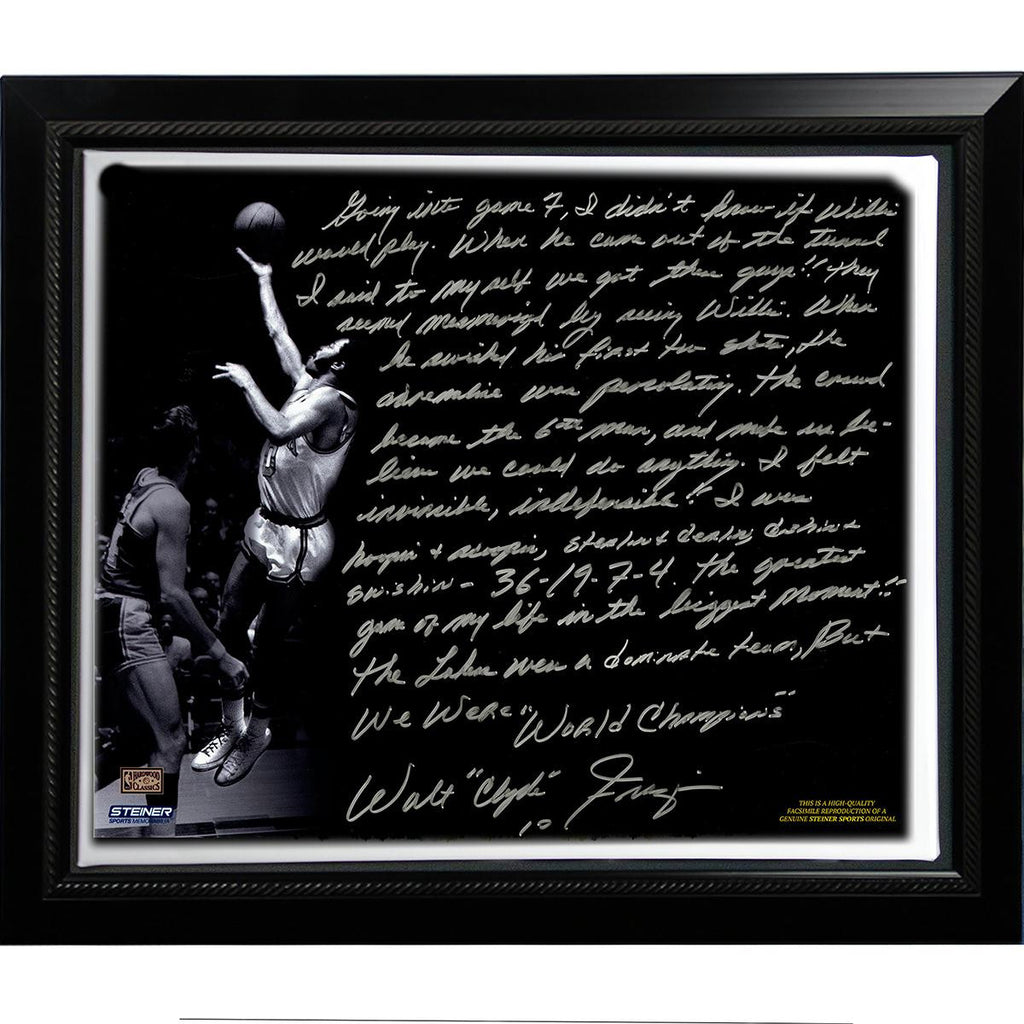 Going into game 7, I didn't know if Willis
would play. When he came out of the tunnel
I said to my self we got these guys!! They
seemed mesmerized by seeing Willis. When
he swished his first two shots, the
adrenaline was percolating. The crowd
became the 6th man, and made us be-
lieve we could do anything. I felt
invincible, indefensible!! I was
hoopin + scoopin, stealin + dealin, dishin +
swishin - 36-19-7-4. The greatest
game of my life in the biggest moment!!
The Lakers were a dominate team, But
We Were "World Champions"
Walt "Clyde" Frazier
10
NBA HARDWOOD CLASSICS
STEINER
SPORTS MEMORABILIA
THIS IS A HIGH-QUALITY
FACSIMILE REPRODUCTION OF A
GENUINE STEINER SPORTS ORIGINAL